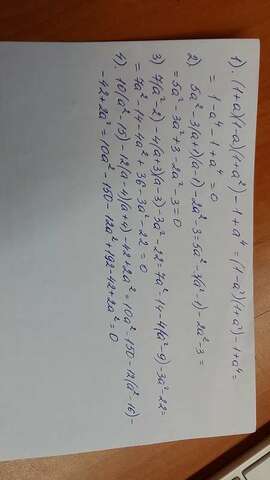 1). (1+a)(1-a)(1+a²)-1+a⁴ = (1-a²)(1+a²)-1+a⁴=
= 1-a⁴-1+a⁴=0
2) 5a²-3(a+1)(a-1)-2a²-3=5a²-3(a²-1)-2a²-3=
=5a²-3a²+3-2a²-3=0
3) 7(a²-2)-4(a+3)(a-3)-3a²-22=7a²-14-4(a²-9)-3a²-22=
=7a²-14-4a²+36-3a²-22=0
4). 10(a²-15)-12(a-4)(a+4)-42+2a²=10a²-150-12(a²-16)-
-42+2a²=10a²-150-12a²+192-42+2a²=0